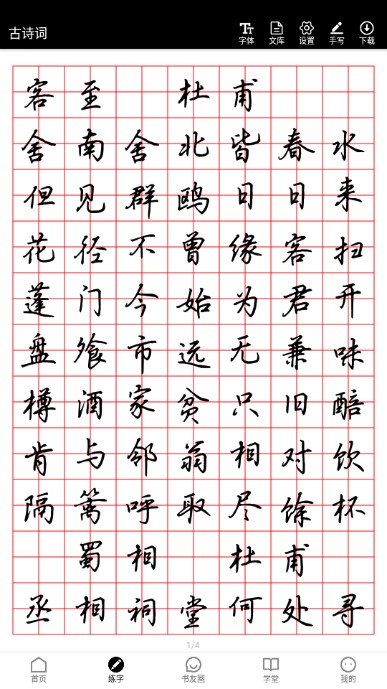 古诗词
字体 文库 设置 手写 下载
客至 杜甫
舍南舍北皆春水
但见群鸥日日来
花径不曾缘客扫
蓬门今始为君开
盘飧市远无兼味
樽酒家贫只旧醅
肯与邻翁相对饮
隔篱呼取尽馀杯
蜀相 杜甫
丞相祠堂何处寻
1/4
首页 练字 书友圈 学堂 我的